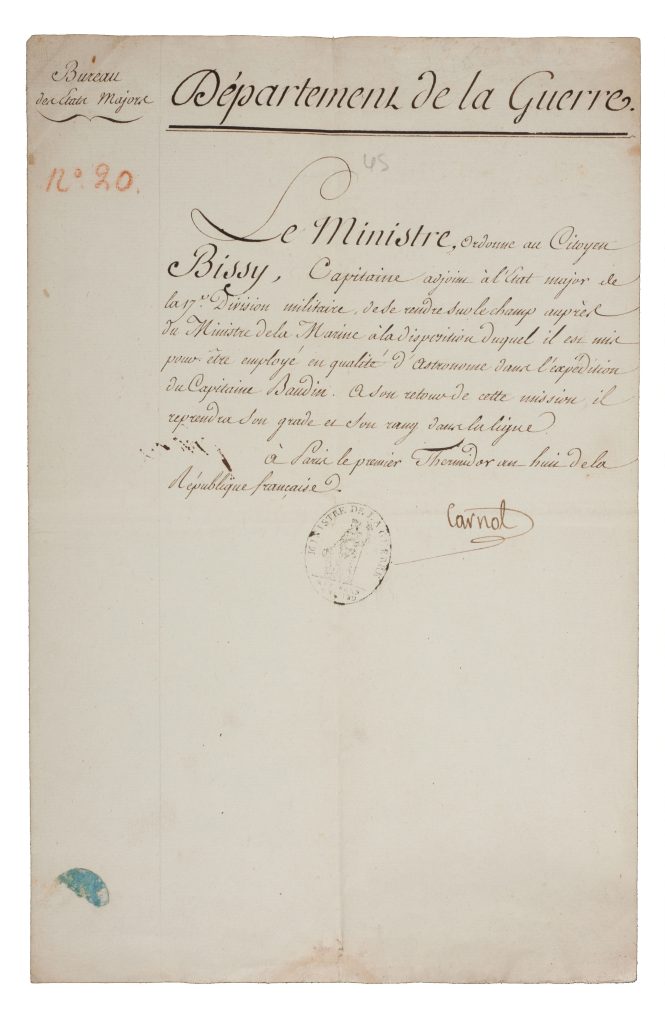 Bureau
des Etats Majors
Département de la Guerre.
N.º 20.
45
Le Ministre, ordonne au Citoyen
Bissy, Capitaine adjoint à l'Etat major de
la 17.e Division militaire, de se rendre sur le champ auprès
du Ministre de la Marine à la disposition duquel il est mis
pour être employé en qualité d'Astronome dans l'expédition
du Capitaine Baudin. A son retour de cette mission il
reprendra son grade et son rang dans la ligne.
à Paris le premier Thermidor an huit de la
République française.
Carnot
MINISTRE DE LA GUERRE